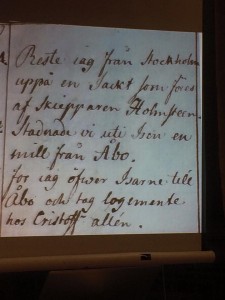 Reste iag från Stockholm
uppå en Jackt som föres
af Skiepparen Holmsteen.
Stadnade vi uti Isen en
mill från Åbo.
for iag öfwer Isarne till
Åbo och tag logemente
hos Cristoff allén.